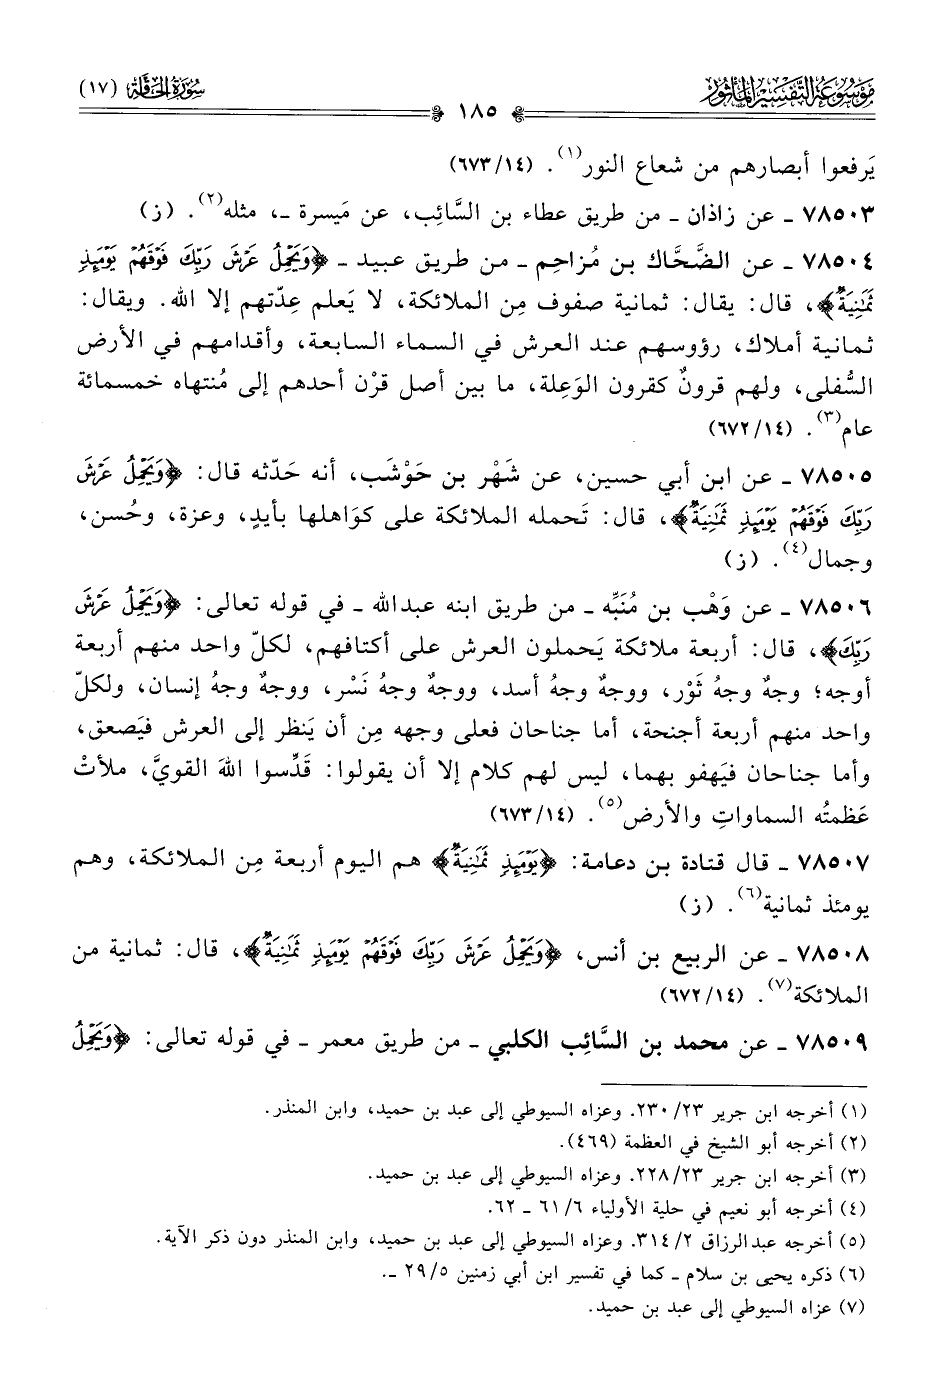 مَوسُوعَة التَّفسِير المَأثُور
سُورَةُ الحَاقَّة (١٧)
١٨٥
يَرفعوا أبصارهم من شعاع النور(١). (١٤/٦٧٣)
٧٨٥٠٣ ـ عن زاذان ـ من طريق عطاء بن السَّائِب، عن مَيسرة ـ، مثله(٢). (ز)
٧٨٥٠٤ ـ عن الضَّحَّاك بن مُزاحِم ـ من طريق عبيد ـ ﴿وَيَحْمِلُ عَرْشَ رَبِّكَ فَوْقَهُمْ يَوْمَئِذٍ
ثَمَٰنِيَةٌ﴾، قال: يقال: ثمانية صفوف مِن الملائكة، لا يَعلم عِدّتهم إلا الله. ويقال:
ثمانية أملاك، رؤوسهم عند العرش في السماء السابعة، وأقدامهم في الأرض
السُّفلى، ولهم قرونٌ كقرون الوَعِلة، ما بين أصل قرْن أحدهم إلى مُنتهاه خمسمائة
عام(٣). (١٤/٦٧٢)
٧٨٥٠٥ ـ عن ابن أبي حسين، عن شَهْر بن حَوْشَب، أنه حَدّثه قال: ﴿وَيَحْمِلُ عَرْشَ
رَبِّكَ فَوْقَهُمْ يَوْمَئِذٍ ثَمَٰنِيَةٌ﴾، قال: تَحمله الملائكة على كوَاهلها بأيدٍ، وعزة، وحُسن،
وجمال(٤). (ز)
٧٨٥٠٦ ـ عن وَهْب بن مُنَبِّه ـ من طريق ابنه عبدالله ـ في قوله تعالى: ﴿وَيَحْمِلُ عَرْشَ
رَبِّكَ﴾، قال: أربعة ملائكة يَحملون العرش على أكتافهم، لكلّ واحد منهم أربعة
أوجه؛ وجهٌ وجهُ ثَوْر، ووجهٌ وجهُ أسد، ووجهٌ وجهُ نَسْر، ووجهٌ وجهُ إنسان، ولكلّ
واحد منهم أربعة أجنحة، أما جناحان فعلى وجهه مِن أن يَنظر إلى العرش فيَصعق،
وأما جناحان فيَهفو بهما، ليس لهم كلام إلا أن يقولوا: قَدِّسوا اللهَ القويَّ، ملأتْ
عَظمتُه السماواتِ والأرض(٥). (١٤/٦٧٣)
٧٨٥٠٧ ـ قال قتادة بن دعامة: ﴿يَوْمَئِذٍ ثَمَٰنِيَةٌ﴾ هم اليوم أربعة مِن الملائكة، وهم
يومئذ ثمانية(٦). (ز)
٧٨٥٠٨ ـ عن الربيع بن أنس، ﴿وَيَحْمِلُ عَرْشَ رَبِّكَ فَوْقَهُمْ يَوْمَئِذٍ ثَمَٰنِيَةٌ﴾، قال: ثمانية من
الملائكة(٧). (١٤/٦٧٢)
٧٨٥٠٩ ـ عن محمد بن السَّائِب الكلبي ـ من طريق معمر ـ في قوله تعالى: ﴿وَيَحْمِلُ
(١) أخرجه ابن جرير ٢٣/٢٣٠. وعزاه السيوطي إلى عبد بن حميد، وابن المنذر.
(٢) أخرجه أبو الشيخ في العظمة (٤٦٩).
(٣) أخرجه ابن جرير ٢٣/٢٢٨. وعزاه السيوطي إلى عبد بن حميد.
(٤) أخرجه أبو نعيم في حلية الأولياء ٦/٦١ ـ ٦٢.
(٥) أخرجه عبدالرزاق ٢/٣١٤. وعزاه السيوطي إلى عبد بن حميد، وابن المنذر دون ذكر الآية.
(٦) ذكره يحيى بن سلام ـ كما في تفسير ابن أبي زمنين ٥/٢٩ ـ.
(٧) عزاه السيوطي إلى عبد بن حميد.